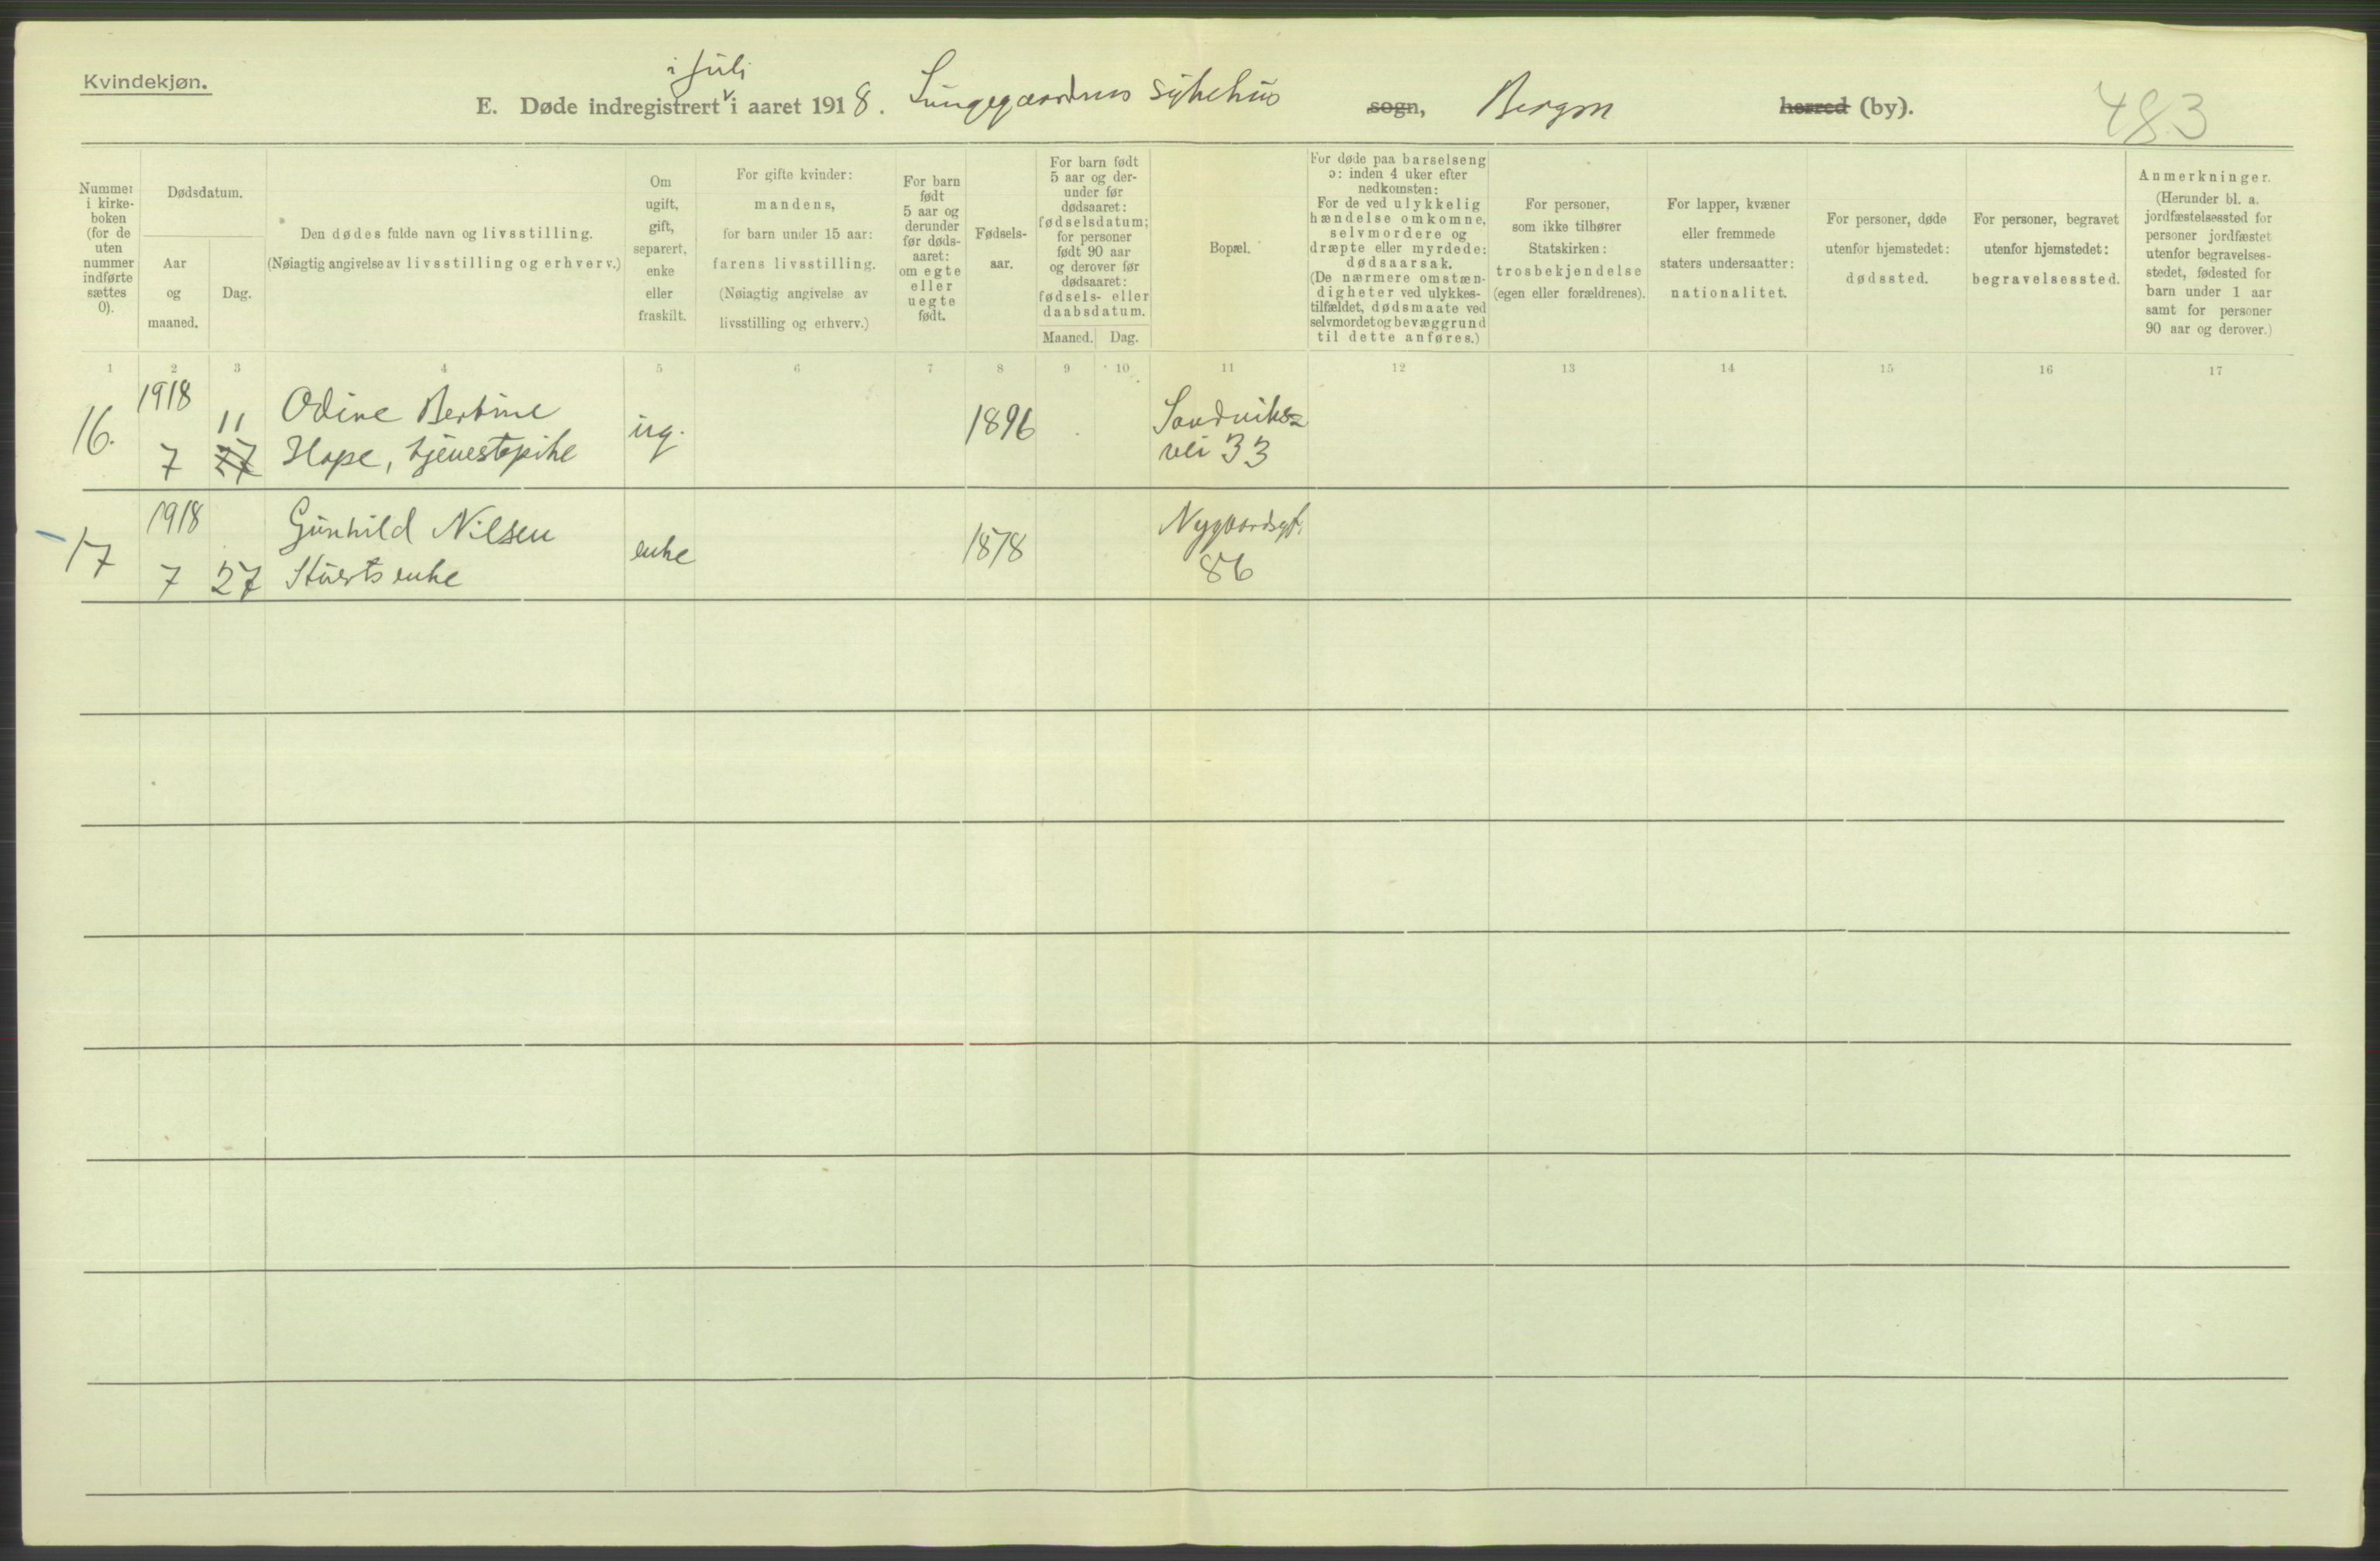 Kvindekjøn.
i juli
E. Døde indregistrert i aaret 1918. Lungegaardens sykehus sogn, Bergen herred (by).
483
Nummer
i kirke-
boken
(for de
uten
nummer
indførte
sættes
0).
Dødsdatum.
Aar
og
maaned.
Dag.
Den dødes fulde navn og livsstilling.
(Nøiagtig angivelse av livsstilling og erhverv.)
Om
ugift,
gift,
separert,
enke
eller
fraskilt.
For gifte kvinder:
mandens,
for barn under 15 aar:
farens livsstilling.
(Nøiagtig angivelse av
livsstilling og erhverv.)
For barn
født
5 aar og
derunder
før døds-
aaret:
om egte
eller
uegte
født.
Fødsels-
aar.
For barn født
5 aar og der-
under før
dødsaaret:
fødselsdatum;
for personer
født 90 aar
og derover før
dødsaaret:
fødsels- eller
daabsdatum.
Maaned. Dag.
Bopæl.
For døde paa barselseng
ɔ: inden 4 uker efter
nedkomsten:
For de ved ulykkelig
hændelse omkomne,
selvmordere og
dræpte eller myrdede:
dødsaarsak.
(De nærmere omstæn-
digheter ved ulykkes-
tilfældet, dødsmaate ved
selvmordet og bevæggrund
til dette anføres.)
For personer,
som ikke tilhører
Statskirken:
trosbekjendelse
(egen eller forældrenes).
For lapper, kvæner
eller fremmede
staters undersaatter:
nationalitet.
For personer, døde
utenfor hjemstedet:
dødssted.
For personer, begravet
utenfor hjemstedet:
begravelsessted.
Anmerkninger.
(Herunder bl. a.
jordfæstelsessted for
personer jordfæstet
utenfor begravelses-
stedet, fødested for
barn under 1 aar
samt for personer
90 aar og derover.)
1 2 3 4 5 6 7 8 9 10 11 12 13 14 15 16 17
1918 11 Odine Bertine Sandviks=
16. 7 27 Hope, tjenestepike ug. 1896 vei 33
1918 Gunhild Nilsen Nygaardsgt.
17 7 27 Stuerts enke enke 1878 86